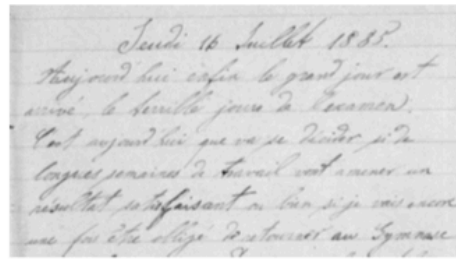 Jeudi 16 Juillet 1885.
Aujourd'hui enfin le grand jour est
arrivé, le terrible jour de l'examen.
C'est aujourd'hui que va se décider si de
longues semaines de travail vont amener un
résultat satisfaisant ou bien si je vais encore
une fois être obligé de retourner au Gymnase